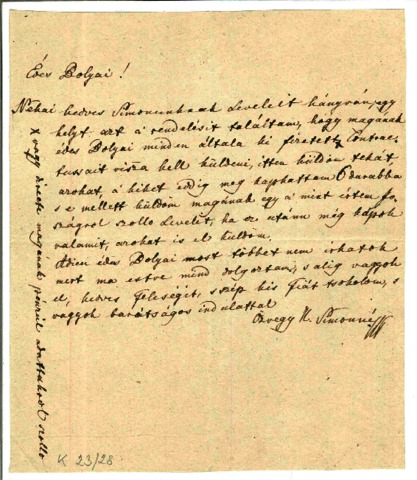 Édes Bolyai!
Néhai kedves Simonunknak Leveleit hányván, egy
helyt azt a rendelésit találtam, hogy magának
édes Bolyai minden általa ki fizetett Contrac-
tussait vissza kell küldeni, itten küldöm tehát
azokat, a kiket eddig meg kaphattam 6 darabba
s e mellett küldöm magának egy a mint értem Jo-
szágrol szollo Levelit, ha ez utánn még kapok
valamit, azokat is el küldöm.
Édes Bolyai most többet nem irhatok
mert ma estve mind dolgoztam, s alig vagyok
el, kedves Feleségit, szép kis fiát tsokolom, s
vagyok barátságos indulattal
Özvegy K. Simonné
X vagy direte magának pénzrül adattakrol szollo
K 23/28